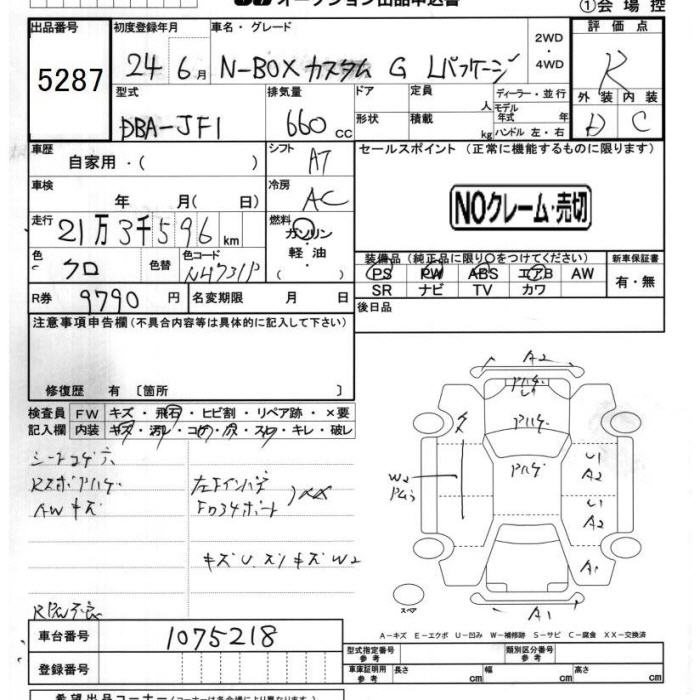 オークション出品申込書
①会場控
出品番号 初度登録年月 車名・グレード 評価点
5287 24 6月 N-BOX カスタム G Lパッケージ 2WD ・ 4WD R
型式 排気量 ドア 定員 ディーラー・並行 外装 内装
DBA-JF1 660cc 形状 積載 人 kg モデル年式 年 ハンドル 左・右 D C
車歴 自家用・( ) シフト AT セールスポイント (正常に機能するものに限ります)
車検 年 月( 日) 冷房 AC
NOクレーム・売切
走行 21万3千596km 燃料 ガソリン・軽油・( )
色 クロ 色替 色コード NH731P
装備品(純正品に限り○をつけてください) 新車保証書
PS PW ABS エアB AW 有・無
SR ナビ TV カワ
R券 9790円 名変期限 月 日 後日品
注意事項申告欄(不具合内容等は具体的に記入して下さい)
修復歴 有 〔箇所 〕
検査員 FW キズ・飛石・ヒビ割・リペア跡・×要
記入欄 内装 キズ・汚レ・コゲ・穴・スレ・キレ・破レ
シートコゲ穴
AWキズ
キズU.スリキズW2
A2
アハゲ
アハゲ
W2
U1
A2
U1
A2
A1
A1
スペア
A−キズ E−エクボ U−凹み W−補修跡 S−サビ C−腐食 XX−交換済
車台番号 1075218
型式指定番号 参考 類別区分番号 参考
登録番号 車庫証明用 参考 長さ cm 幅 cm 高さ cm
希望出品コーナー(コーナーは各会場により異なります)